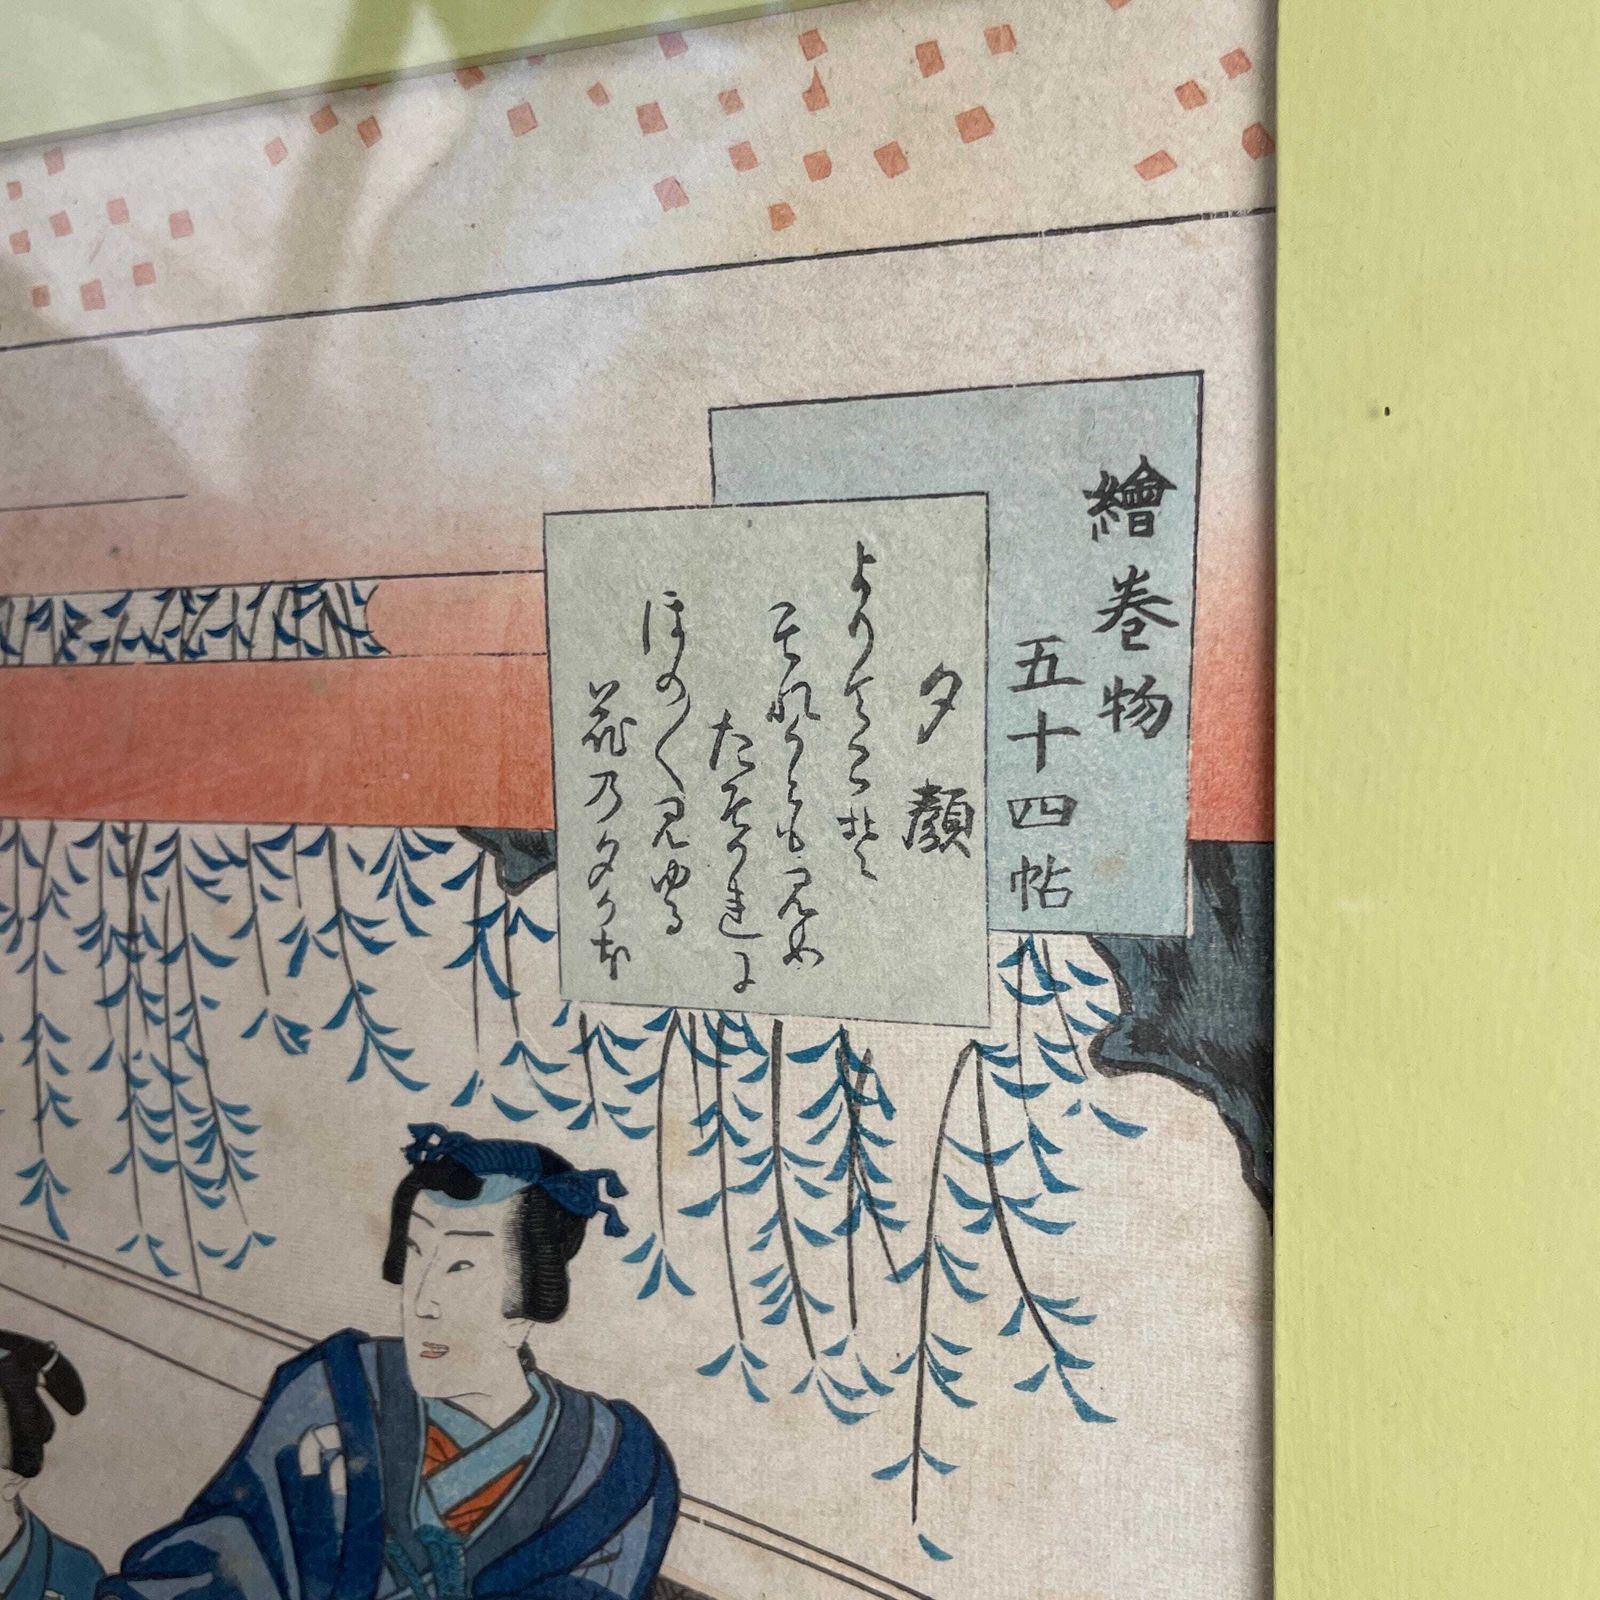 繪巻物
五十四帖
夕顔
よりてこそ
それかとも見め
たそかれに
ほの〳〵見ゆる
花乃夕かほ